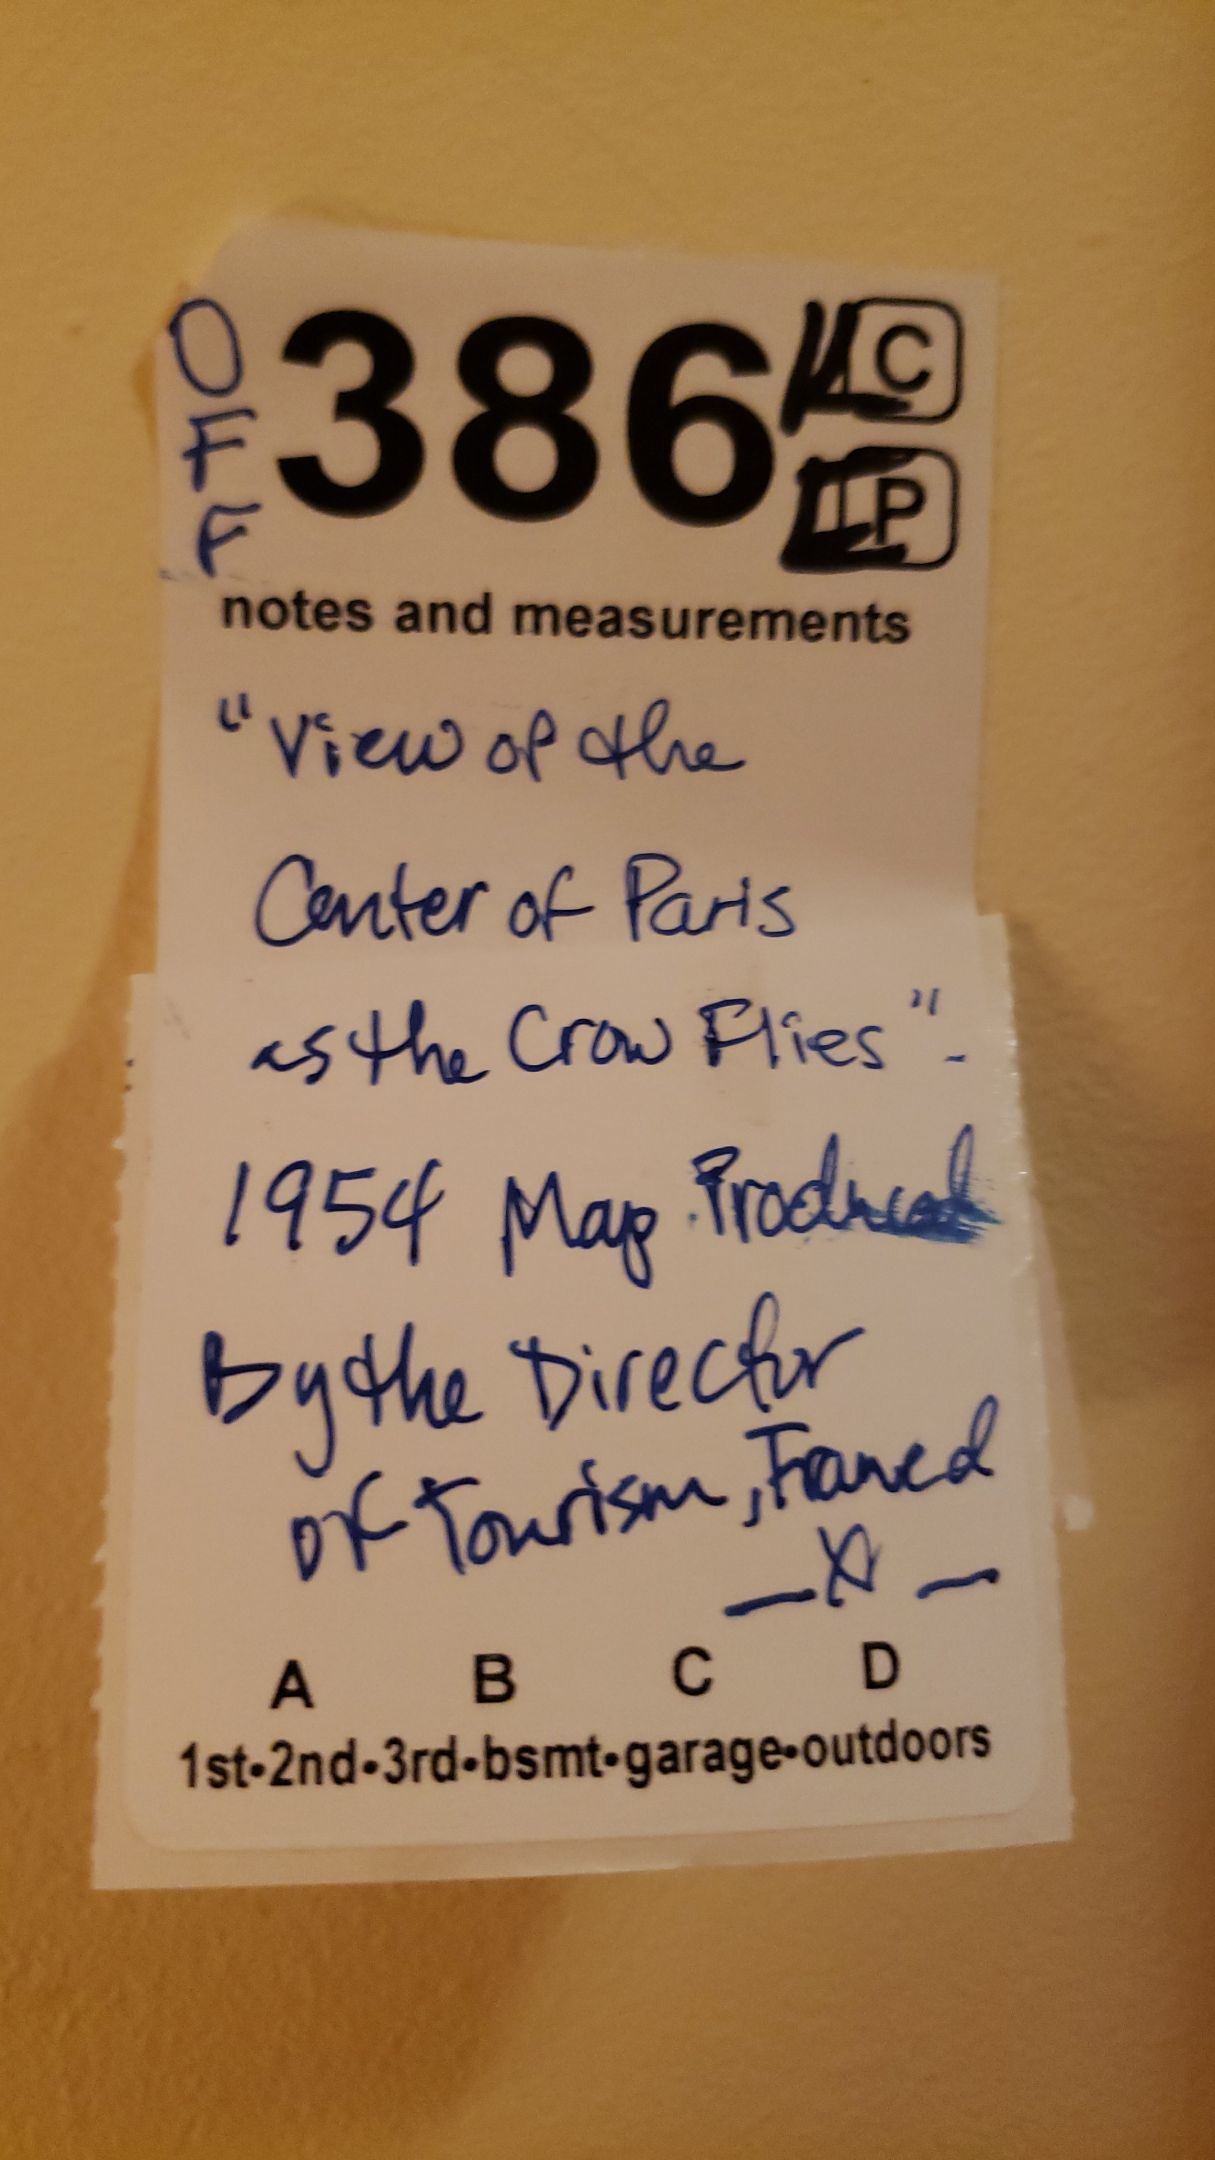 OFF
386 C
P
notes and measurements
"View of the
Center of Paris
as the Crow Flies"-
1954 Map Produced
By the Director
of Tourism, Framed
— X —
A B C D
1st•2nd•3rd•bsmt•garage•outdoors